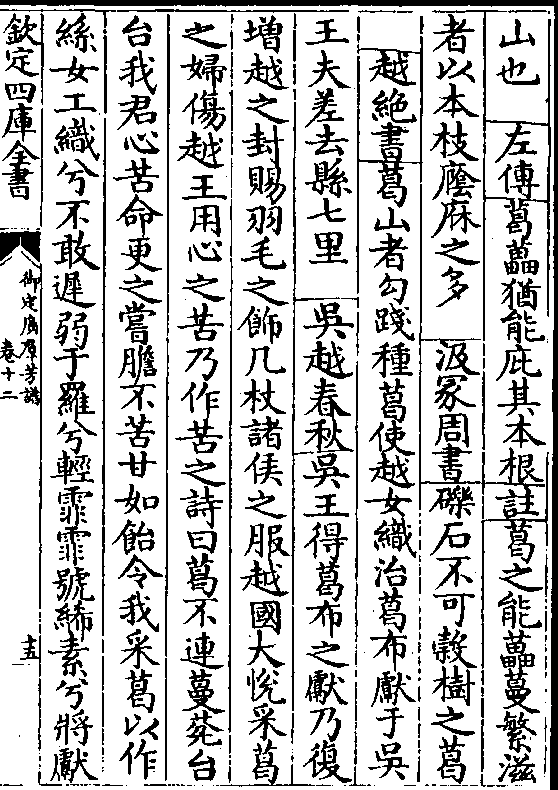 山也　左傳葛藟猶能庇其本根註葛之能藟蔓繁滋
者以本枝廕庥之多　汲冢周書礫石不可穀樹之葛
越絶書葛山者勾踐種葛使越女織治葛布獻于吳
王夫差去縣七里　吳越春秋吳王得葛布之獻乃復
增越之封賜羽毛之飾几杖諸侯之服越國大悅采葛
之婦傷越王用心之苦乃作苦之詩曰葛不連蔓棼台
台我君心苦命更之嘗膽不苦甘如飴令我采葛以作
絲女工織兮不敢遲弱于羅兮輕霏霏號絺素兮將獻
欽定四庫全書
御定廣羣芳譜
卷十二
十五